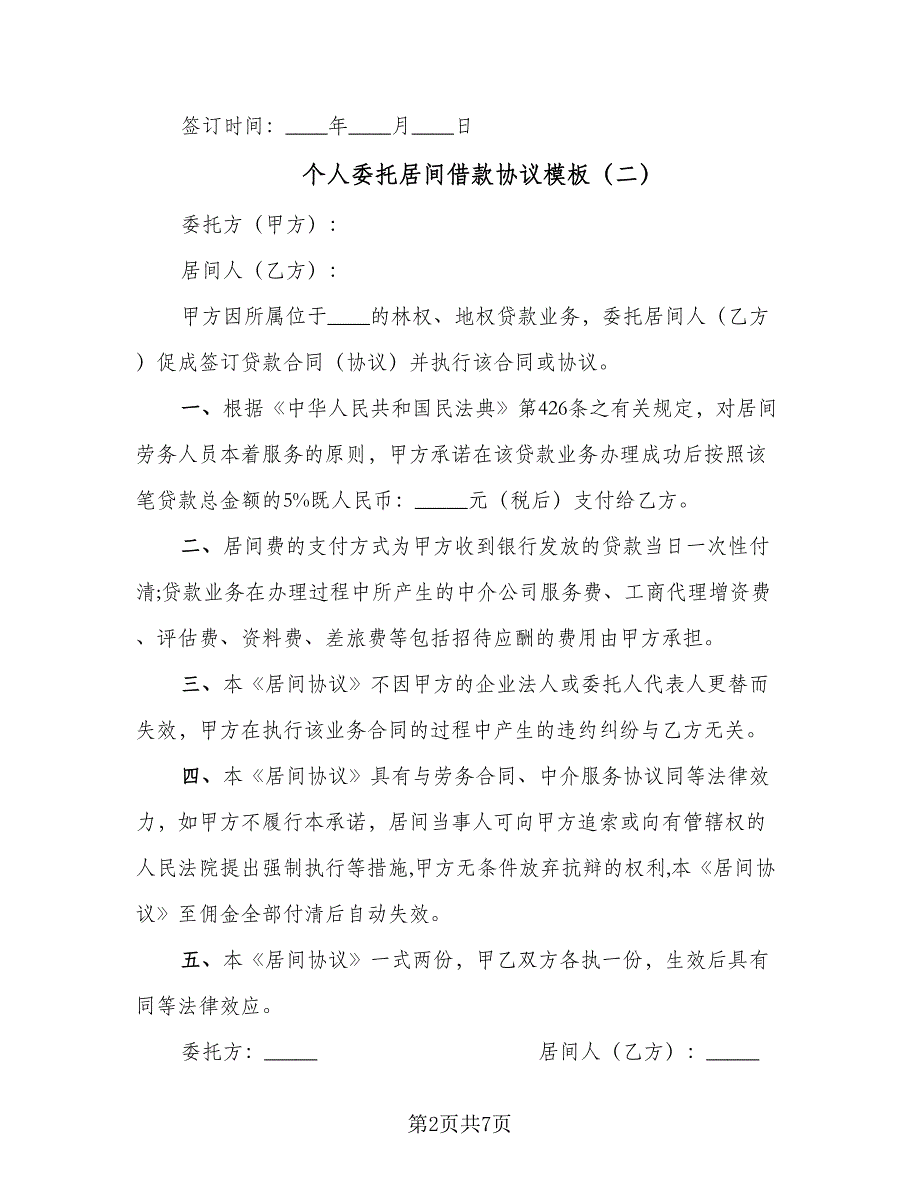 签订时间：____年____月____日
个人委托居间借款协议模板（二）
委托方（甲方）：
居间人（乙方）：
甲方因所属位于____的林权、地权贷款业务，委托居间人（乙方
）促成签订贷款合同（协议）并执行该合同或协议。
一、根据《中华人民共和国民法典》第426条之有关规定，对居间
劳务人员本着服务的原则，甲方承诺在该贷款业务办理成功后按照该
笔贷款总金额的5%既人民币：_____元（税后）支付给乙方。
二、居间费的支付方式为甲方收到银行发放的贷款当日一次性付
清;贷款业务在办理过程中所产生的中介公司服务费、工商代理增资费
、评估费、资料费、差旅费等包括招待应酬的费用由甲方承担。
三、本《居间协议》不因甲方的企业法人或委托人代表人更替而
失效，甲方在执行该业务合同的过程中产生的违约纠纷与乙方无关。
四、本《居间协议》具有与劳务合同、中介服务协议同等法律效
力，如甲方不履行本承诺，居间当事人可向甲方追索或向有管辖权的
人民法院提出强制执行等措施,甲方无条件放弃抗辩的权利,本《居间协
议》至佣金全部付清后自动失效。
五、本《居间协议》一式两份，甲乙双方各执一份，生效后具有
同等法律效应。
委托方：_____ 居间人（乙方）：_____
第2页共7页